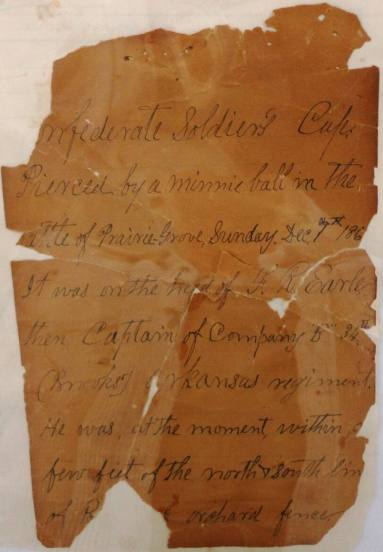 onfederate Soldier's Cap.
Pierced by a minnie ball in the
ttle of Prairie Grove, Sunday, Dec 7th 186
It was on the head of F. R. Earle
then Captain of Company B 34th
(Brooks') Arkansas regiment.
He was, at the moment, within a
few feet of the north & south lin
of orchard fence